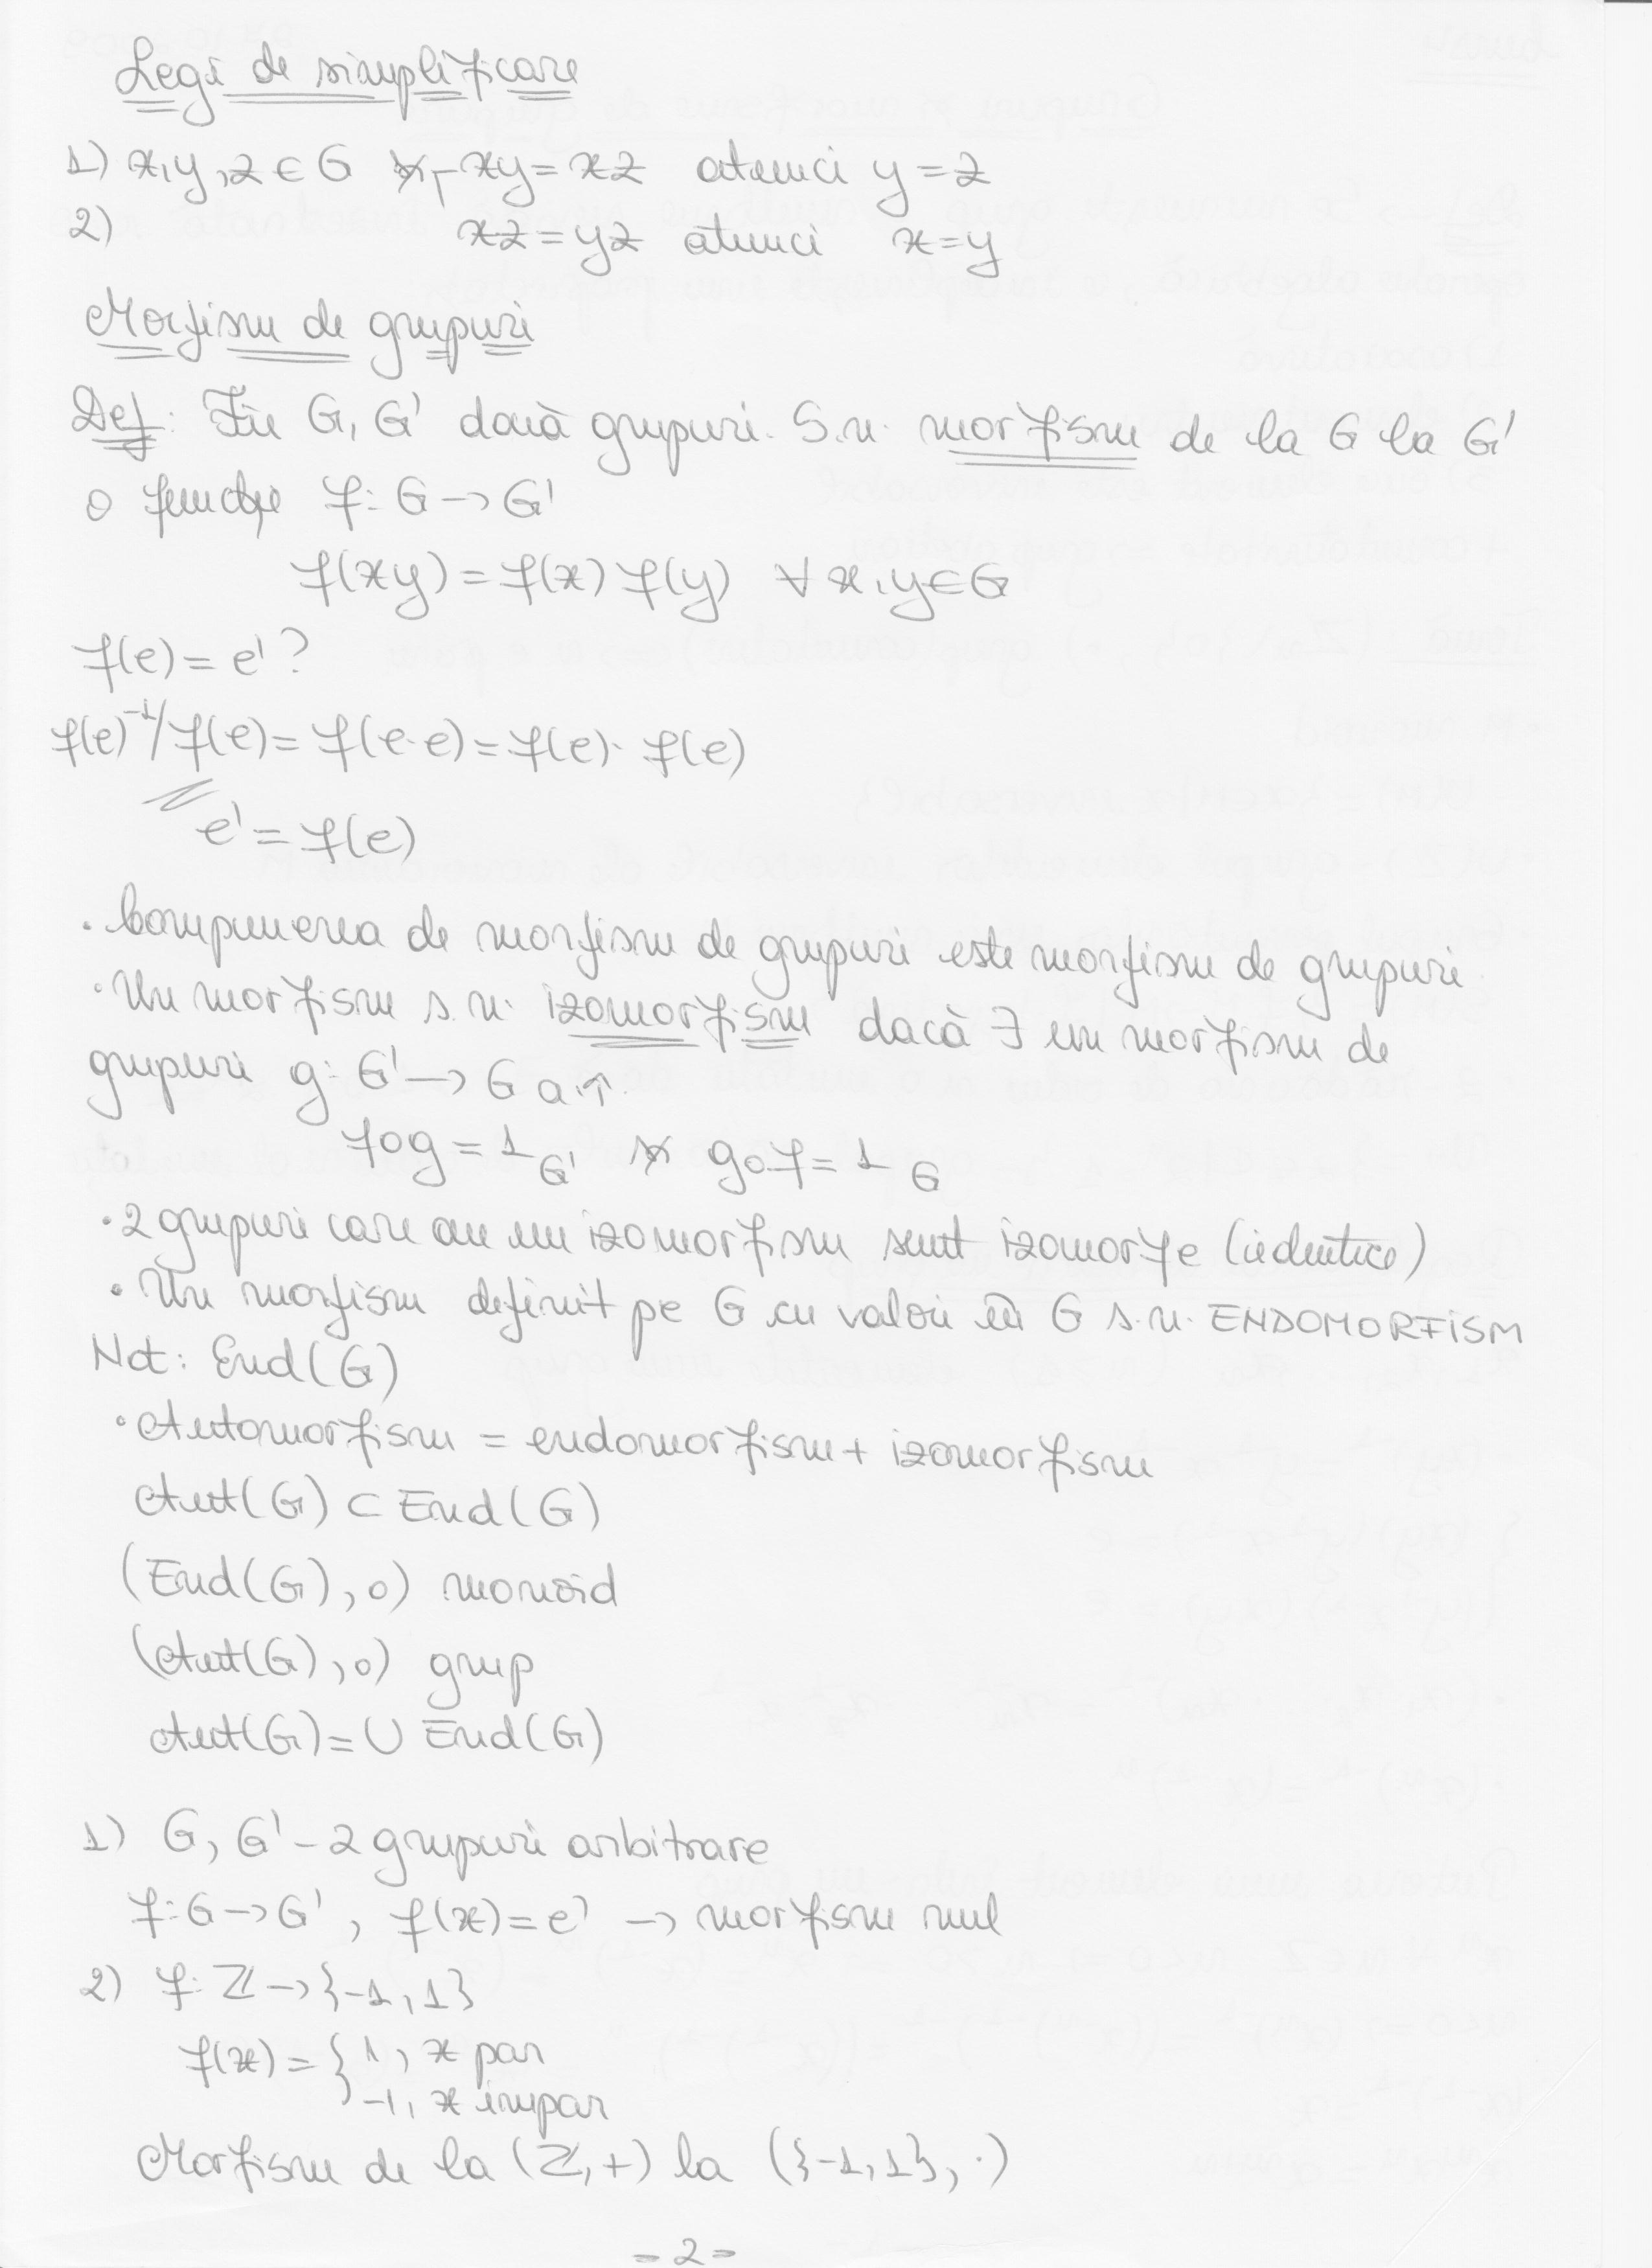 Legi de simplificare
1) x,y,z ∈ G și xy = xz atunci y = z
2) xz = yz atunci x = y
Morfism de grupuri
Def: Fie G, G' două grupuri. S.n. morfism de la G la G'
o funcție f: G → G'
f(xy) = f(x) f(y) ∀ x,y ∈ G
f(e) = e' ?
f(e)⁻¹/ f(e) = f(e·e) = f(e)· f(e)
e' = f(e)
· Compunerea de morfism de grupuri este morfism de grupuri
· Un morfism s.n. izomorfism dacă ∃ un morfism de
grupuri g: G' → G a.î.
f∘g = 1_G' și g∘f = 1_G
· 2 grupuri care au un izomorfism sunt izomorfe (identice)
· Un morfism definit pe G cu valori în G s.n. ENDOMORFISM
Not: End(G)
· Automorfism = endomorfism + izomorfism
Aut(G) ⊂ End(G)
(End(G), ∘) monoid
(Aut(G), ∘) grup
Aut(G) = U End(G)
1) G, G' - 2 grupuri arbitrare
f: G → G', f(x) = e' → morfism nul
2) f: Z → {-1, 1}
f(x) = { 1, x par
-1, x impar
Morfism de la (Z, +) la ({-1, 1}, ·)
- 2 -